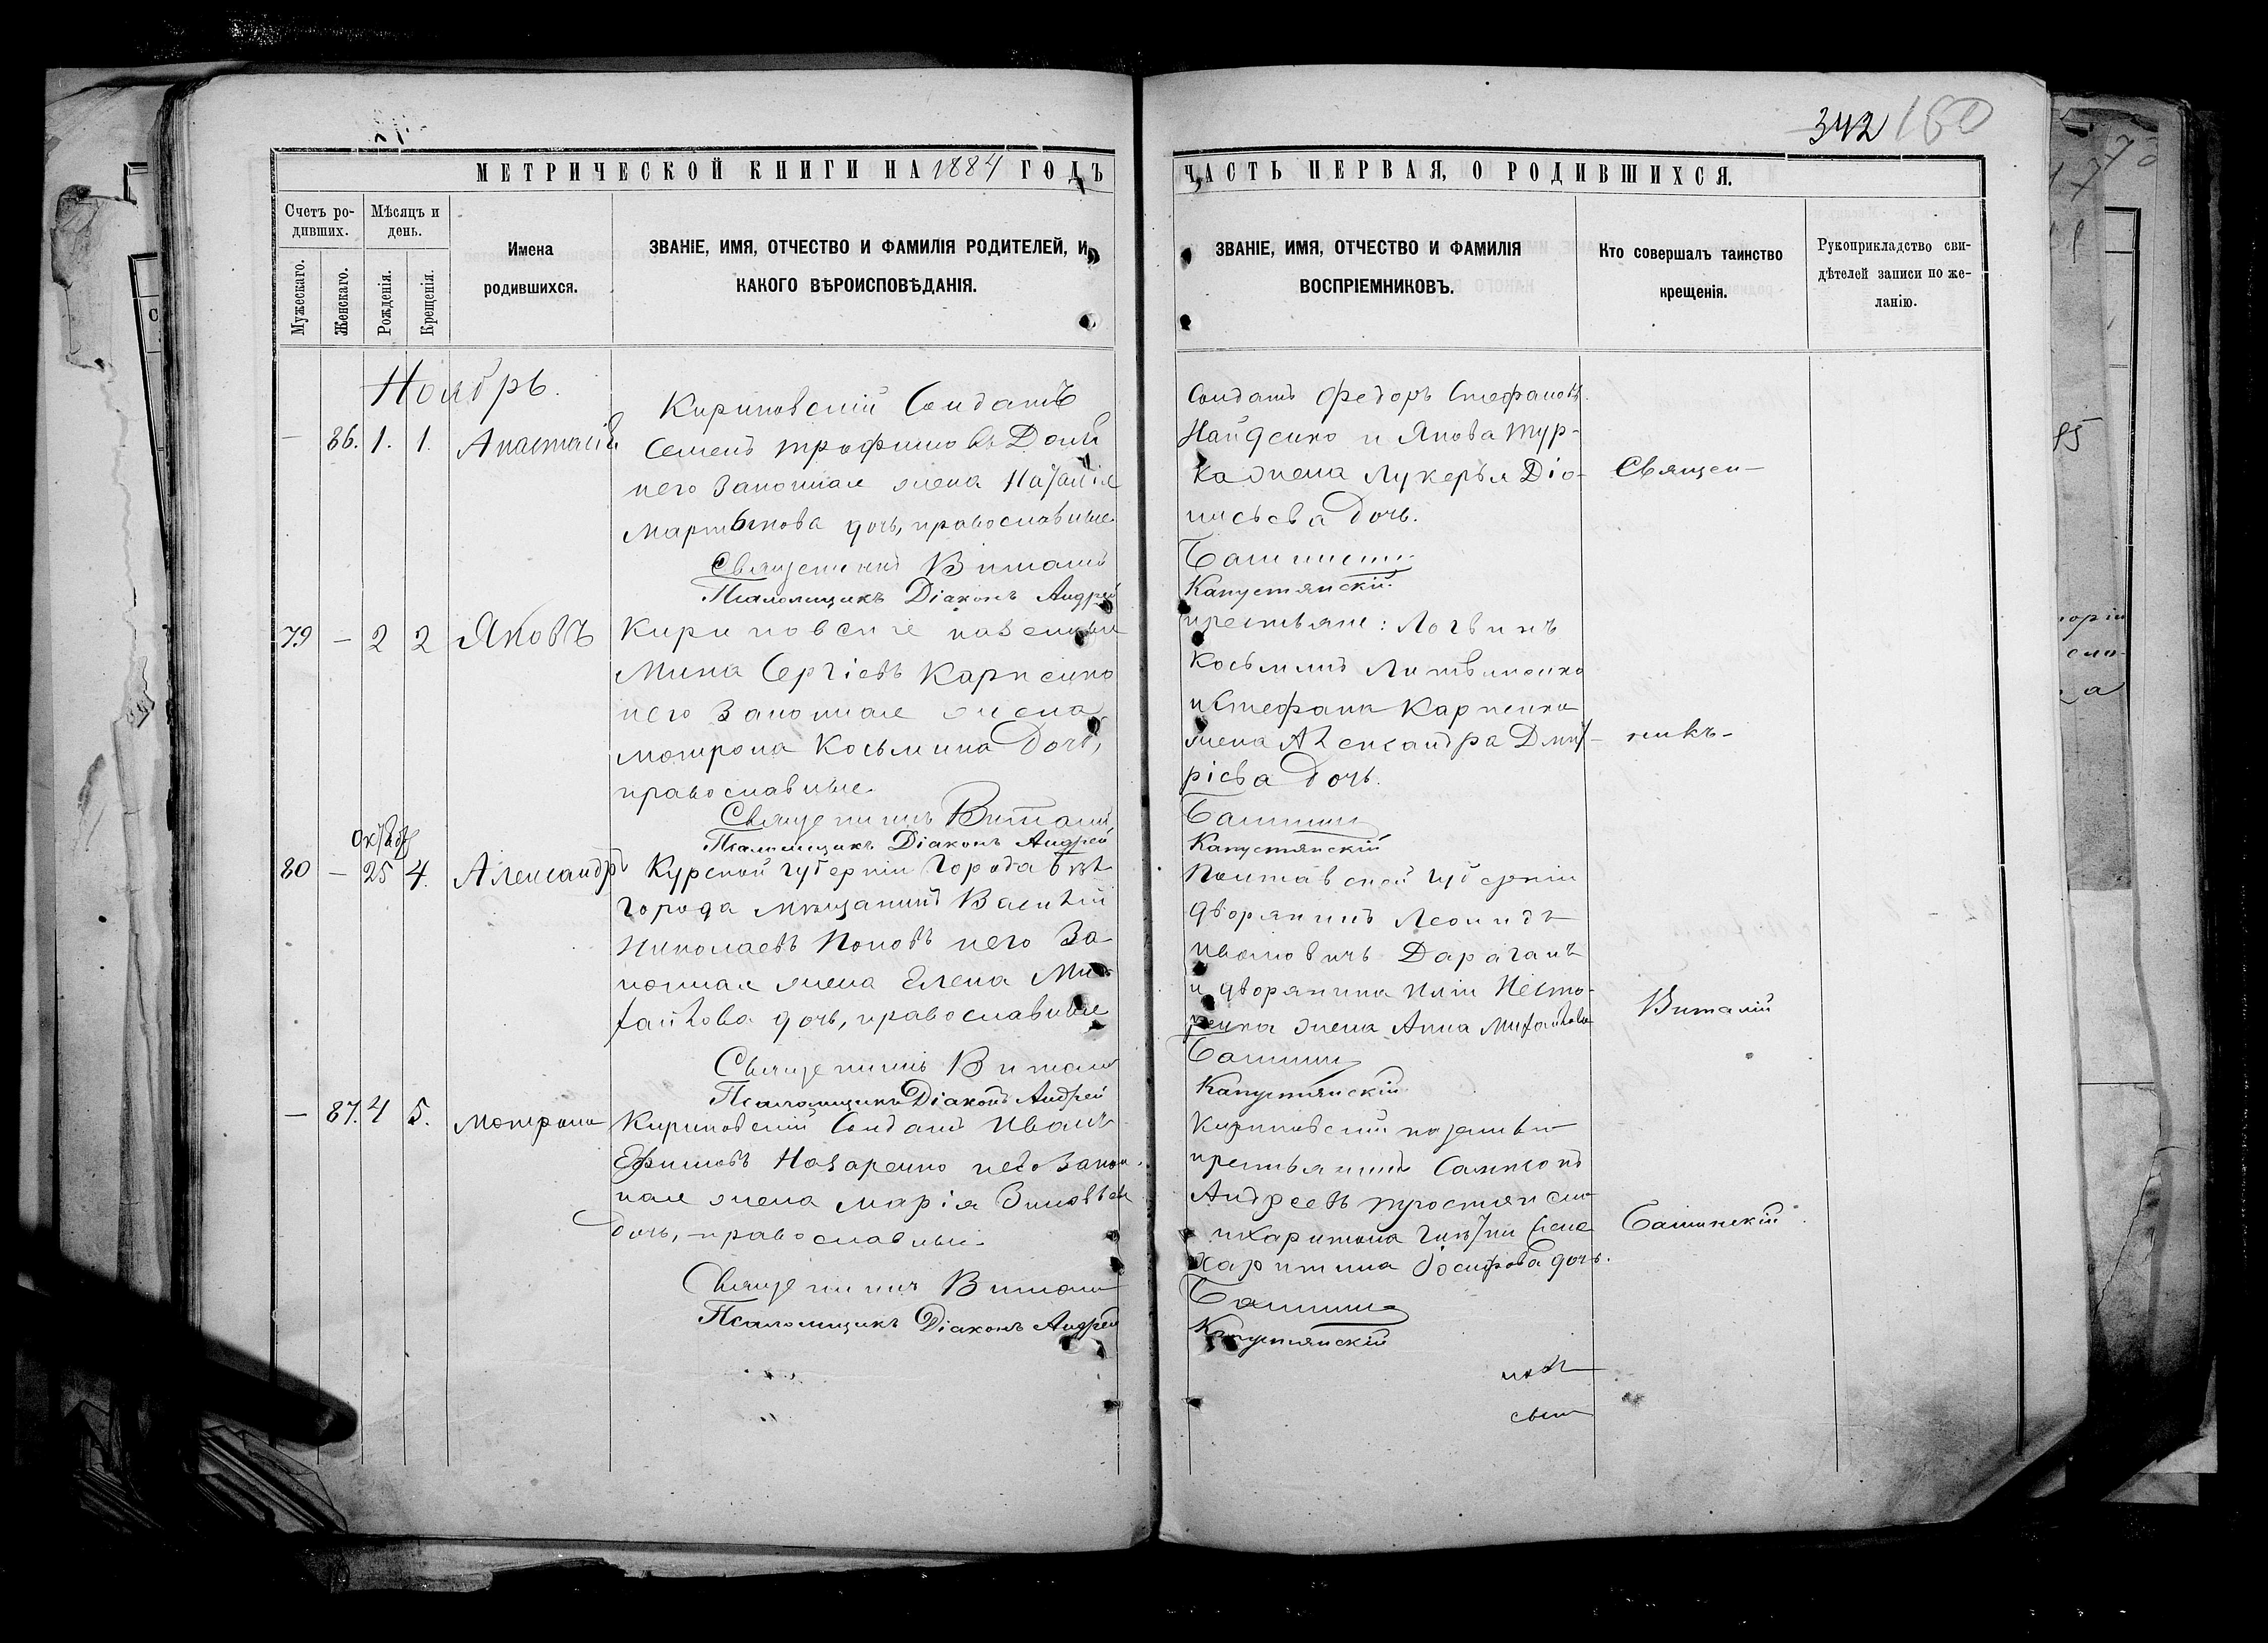 342 180
МЕТРИЧЕСКОЙ КНИГИ НА 1884 ГОДЪ
ЧАСТЬ ПЕРВАЯ, О РОДИВШИХСЯ.
Счетъ ро-
дивших.
Мужескаго.
Женскаго.
Мѣсяцъ и
день.
Рожденія.
Крещенія.
Имена
родившихся.
ЗВАНІЕ, ИМЯ, ОТЧЕСТВО И ФАМИЛІЯ РОДИТЕЛЕЙ, И
КАКОГО ВѢРОИСПОВѢДАНІЯ.
ЗВАНІЕ, ИМЯ, ОТЧЕСТВО И ФАМИЛІЯ
ВОСПРІЕМНИКОВЪ.
Кто совершалъ таинство
крещенія.
Рукоприкладство сви-
дѣтелей записи по же-
ланію.
Ноябрь.
— 86. 1. 1. Анастасія
Кириковскій Солдатъ
Семенъ Трофимовъ
него Законная жена Наталія
Мартынова дочь, православные
Священникъ Виталій
Псаломщикъ Діаконъ Андрей
Солдатъ Федоръ Стефановъ
Найденко и Якова Тур-
ка жена Лукерья Діо-
нисьева дочь.
Башинскій
Капустянскій
Священ-
79 — 2 2 Яковъ
Кириковскіе козаки
Мина Сергіевъ Карпенко
него Законная жена
Мотрона Косьмина дочь,
православные
Священникъ Виталій
Псаломщикъ Діаконъ Андрей
крестьяне: Логвинъ
Косьминъ Литвиненко
и Стефана Карпенка
жена Александра Дмит-
ріева дочь.
Башинскій
Капустянскій
никъ
Октяб
80 — 25 4. Александръ
Курской губерніи Города
города мѣщанинъ Василій
Николаевъ Поповъ него За-
конная жена Елена Ми-
хайлова дочь, православные
Священникъ Виталій
Псаломщикъ Діаконъ Андрей
Полтавской губерніи
дворянинъ Леонидъ
Ивановичъ Дараганъ
и дворянина Иліи Несто-
ренка жена Анна Михайлова
Башинскій
Капустянскій
Виталій
— 87. 4 5. Мотрона
Кириковскій Солдатъ Иванъ
Ефимовъ Назаренко него Закон-
ная жена Марія Зиновьева
дочь, православные
Священникъ Виталій
Псаломщикъ Діаконъ Андрей
Кириковскій
крестьянинъ Сампсонъ
Андреевъ
и Харитона жена
Харитина Іосифова дочь.
Башинскій
Капустянскій
Башинскій